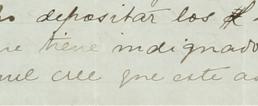 depositar los
tiene indignado
cree que este